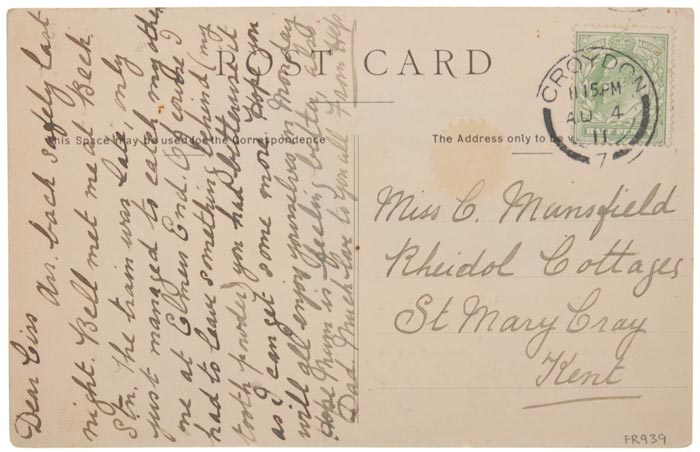 POST CARD
This Space may be used for the Correspondence
The Address only to be
Dear Ciss
Arr. back safely last
night. Bell met me at Beck.
Stn. The train was late only
just managed to catch my other
one at Elmers End. Of course I
had to leave something behind (my
tooth powder) you had better use it
as I can get some more. Hope you
will all enjoy yourselves on Monday
hope Mum is feeling better, also
Dad. Much love to you all from
CROYDON
11.15PM
AU 4
11
7
Miss C. Mansfield
Rheidol Cottages
St Mary Cray
Kent
FR939